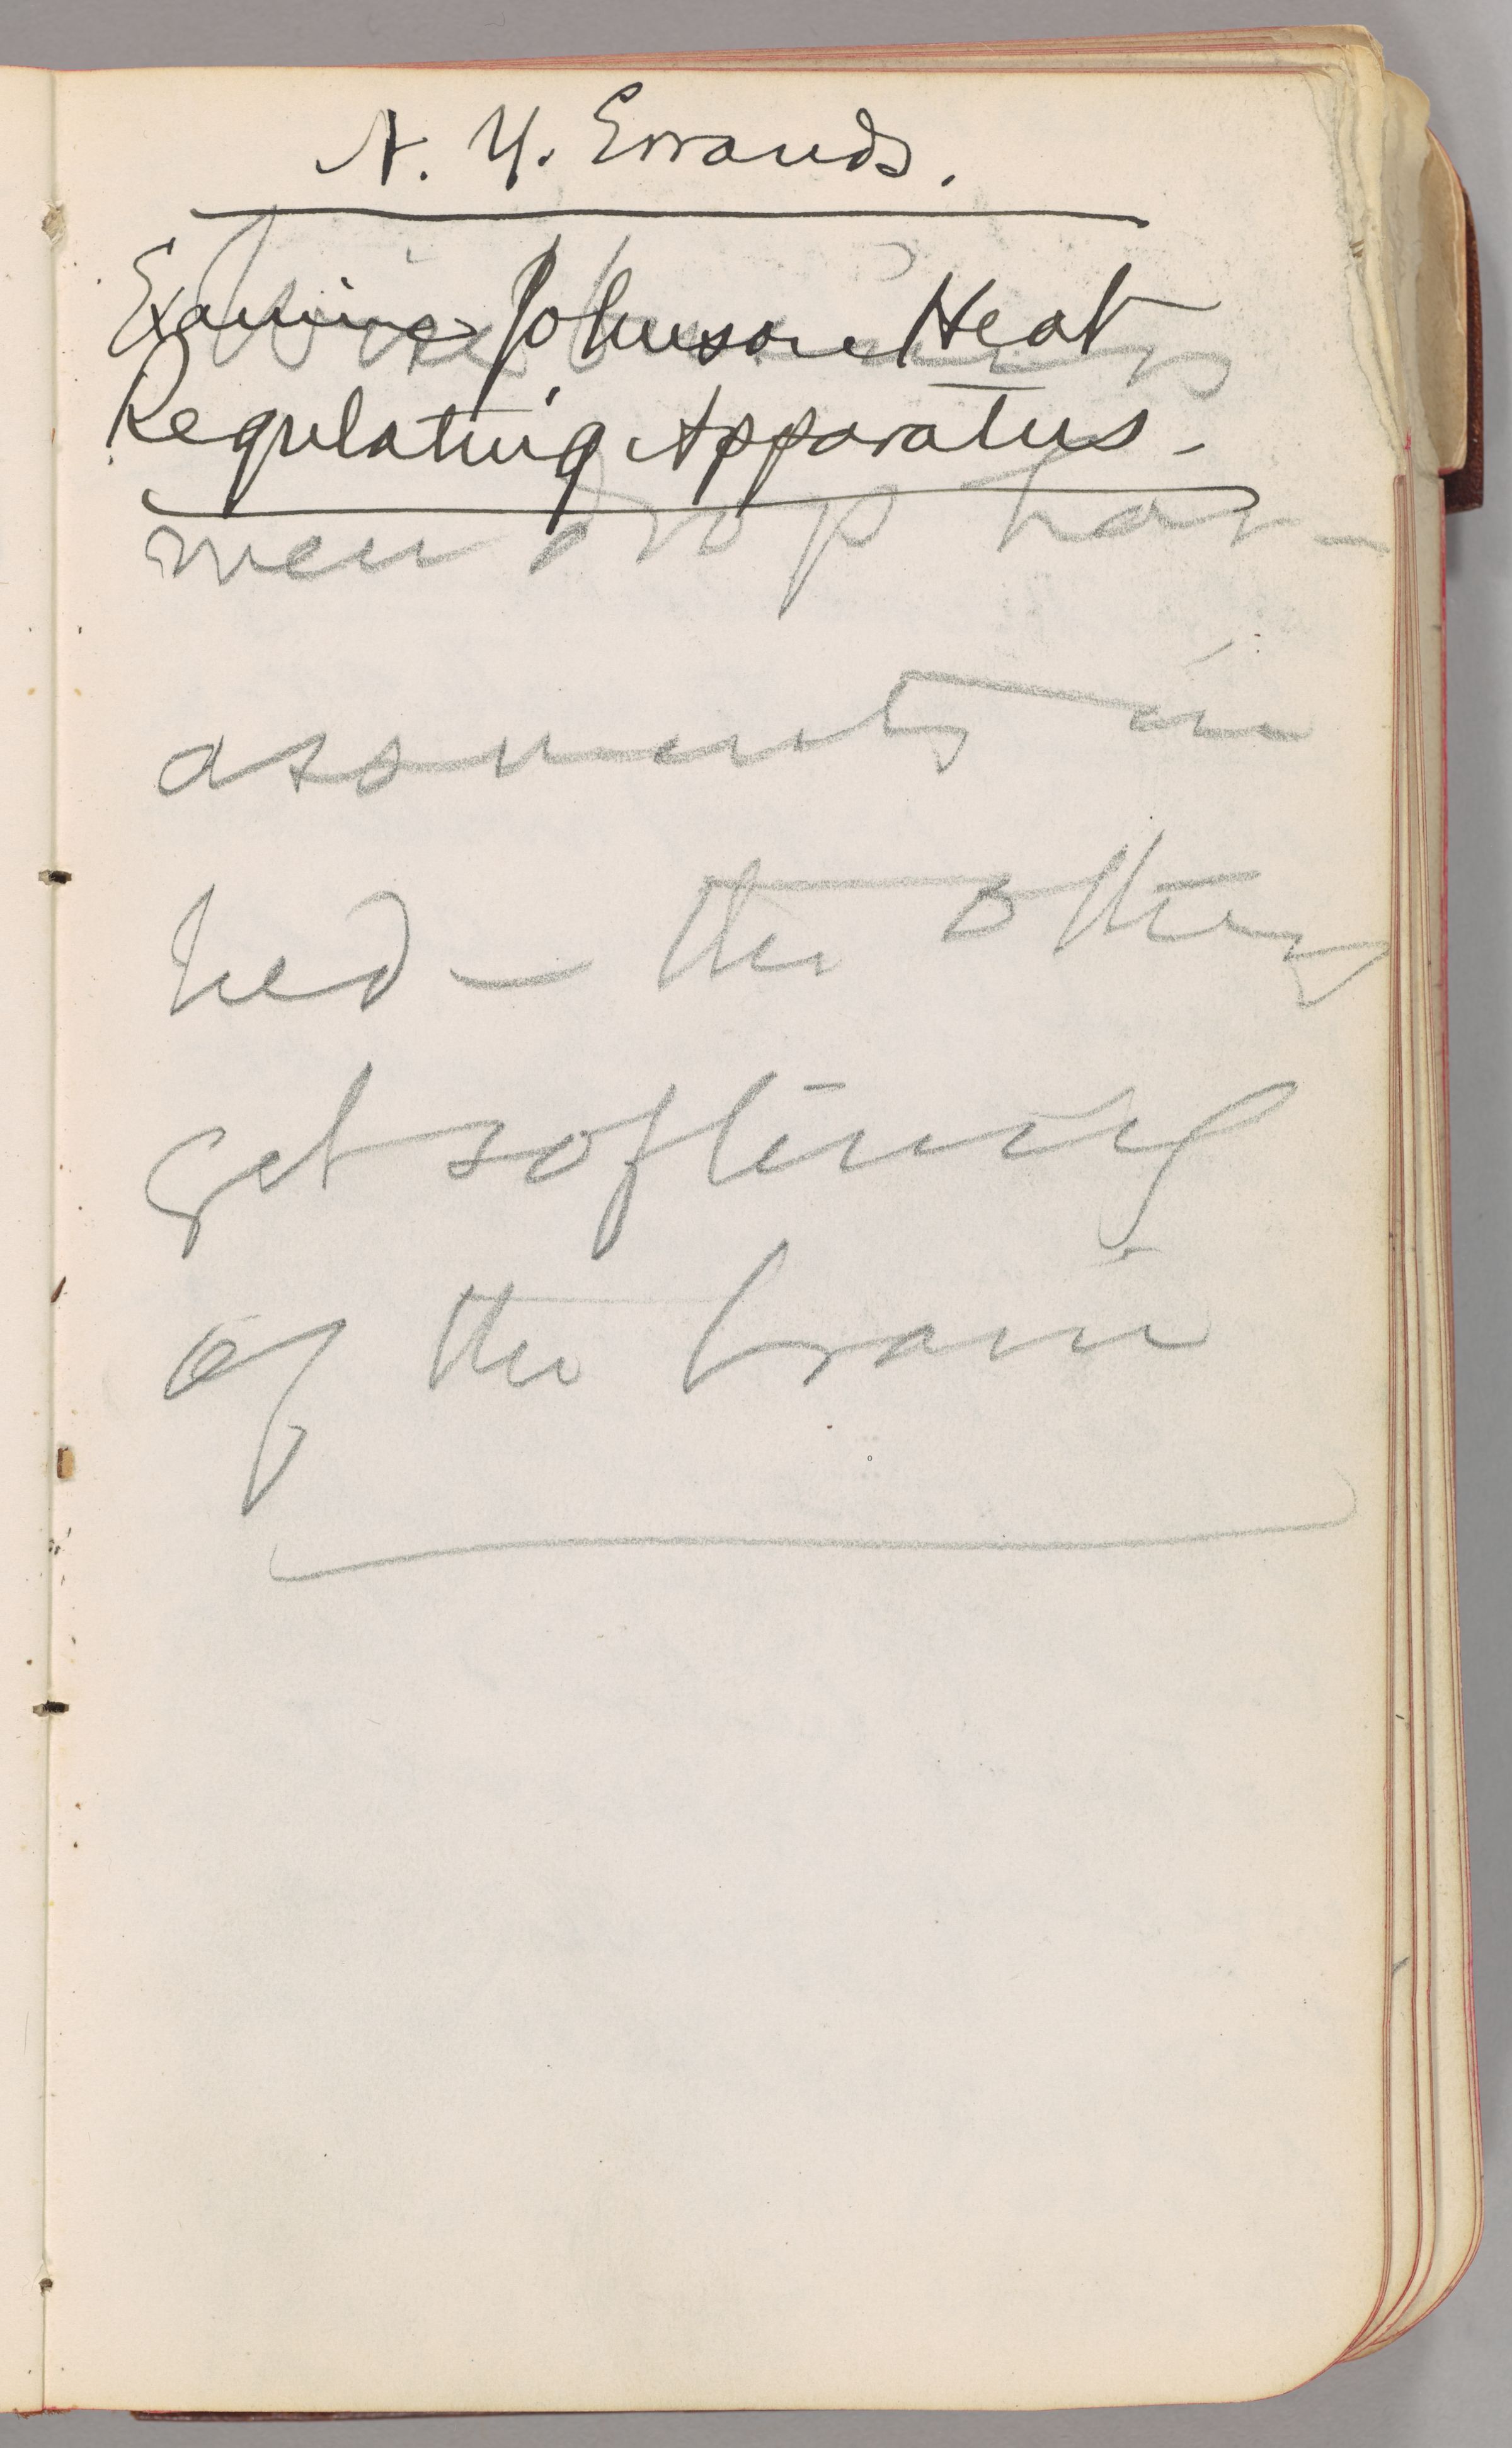 N. Y. Errands.
Examine Johnson Heat
Regulating Apparatus.
men drop har-
assments in
bed — the others
get softening
of the brain